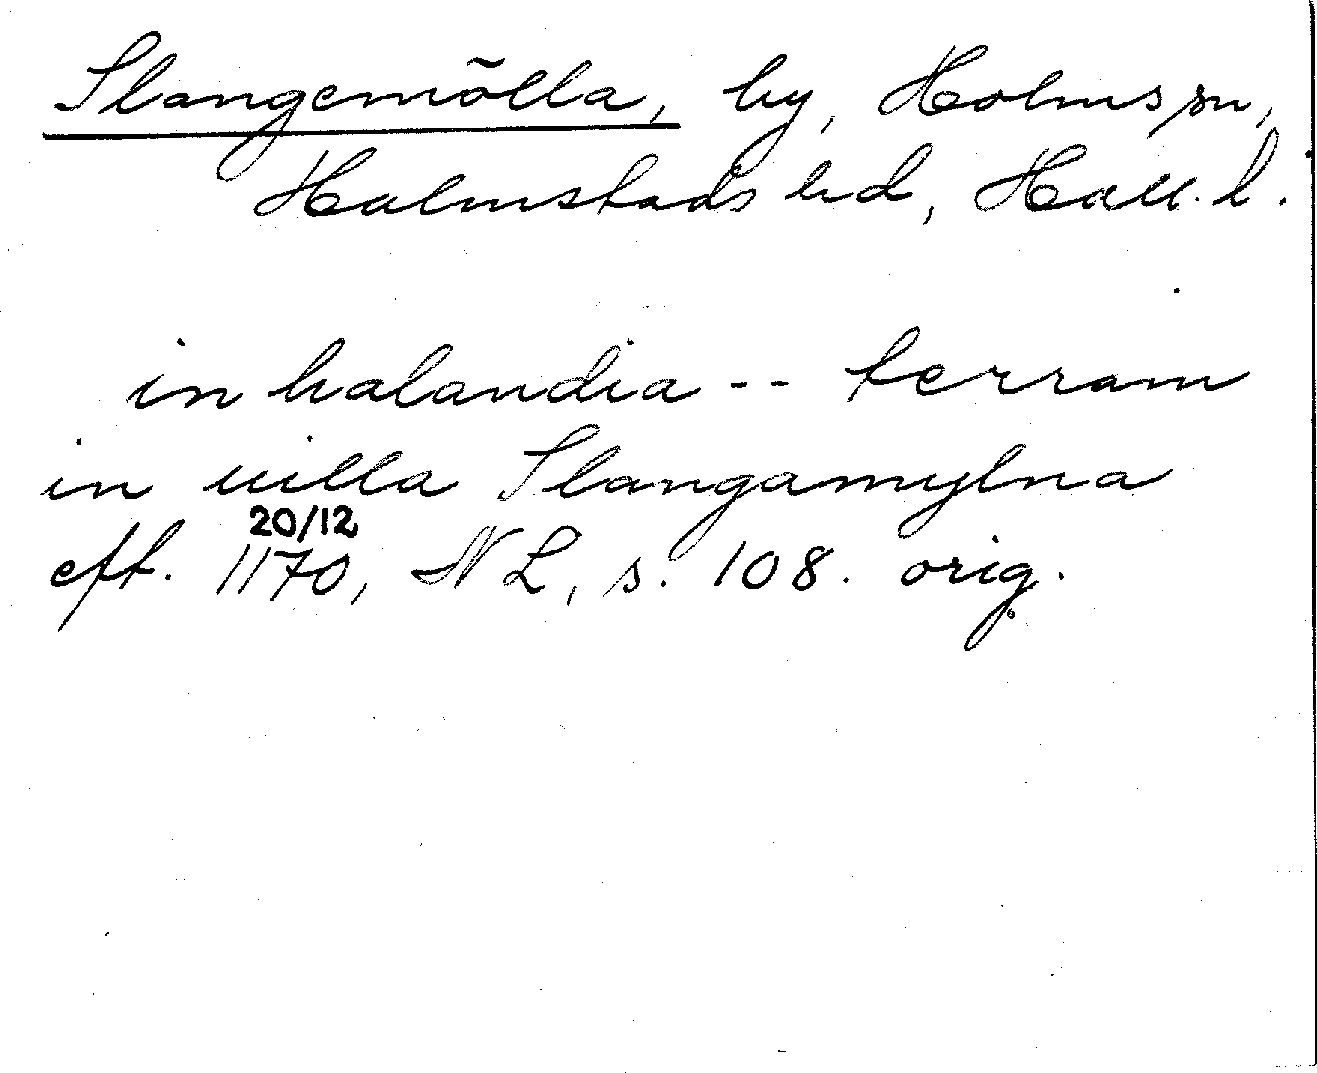 Slangemölla, by, Holms sn,
Halmstads hd, Hall. l.
in halandia -- terram
in uilla Slangamylna
20/12
eft. 1170, NL, s. 108. orig.